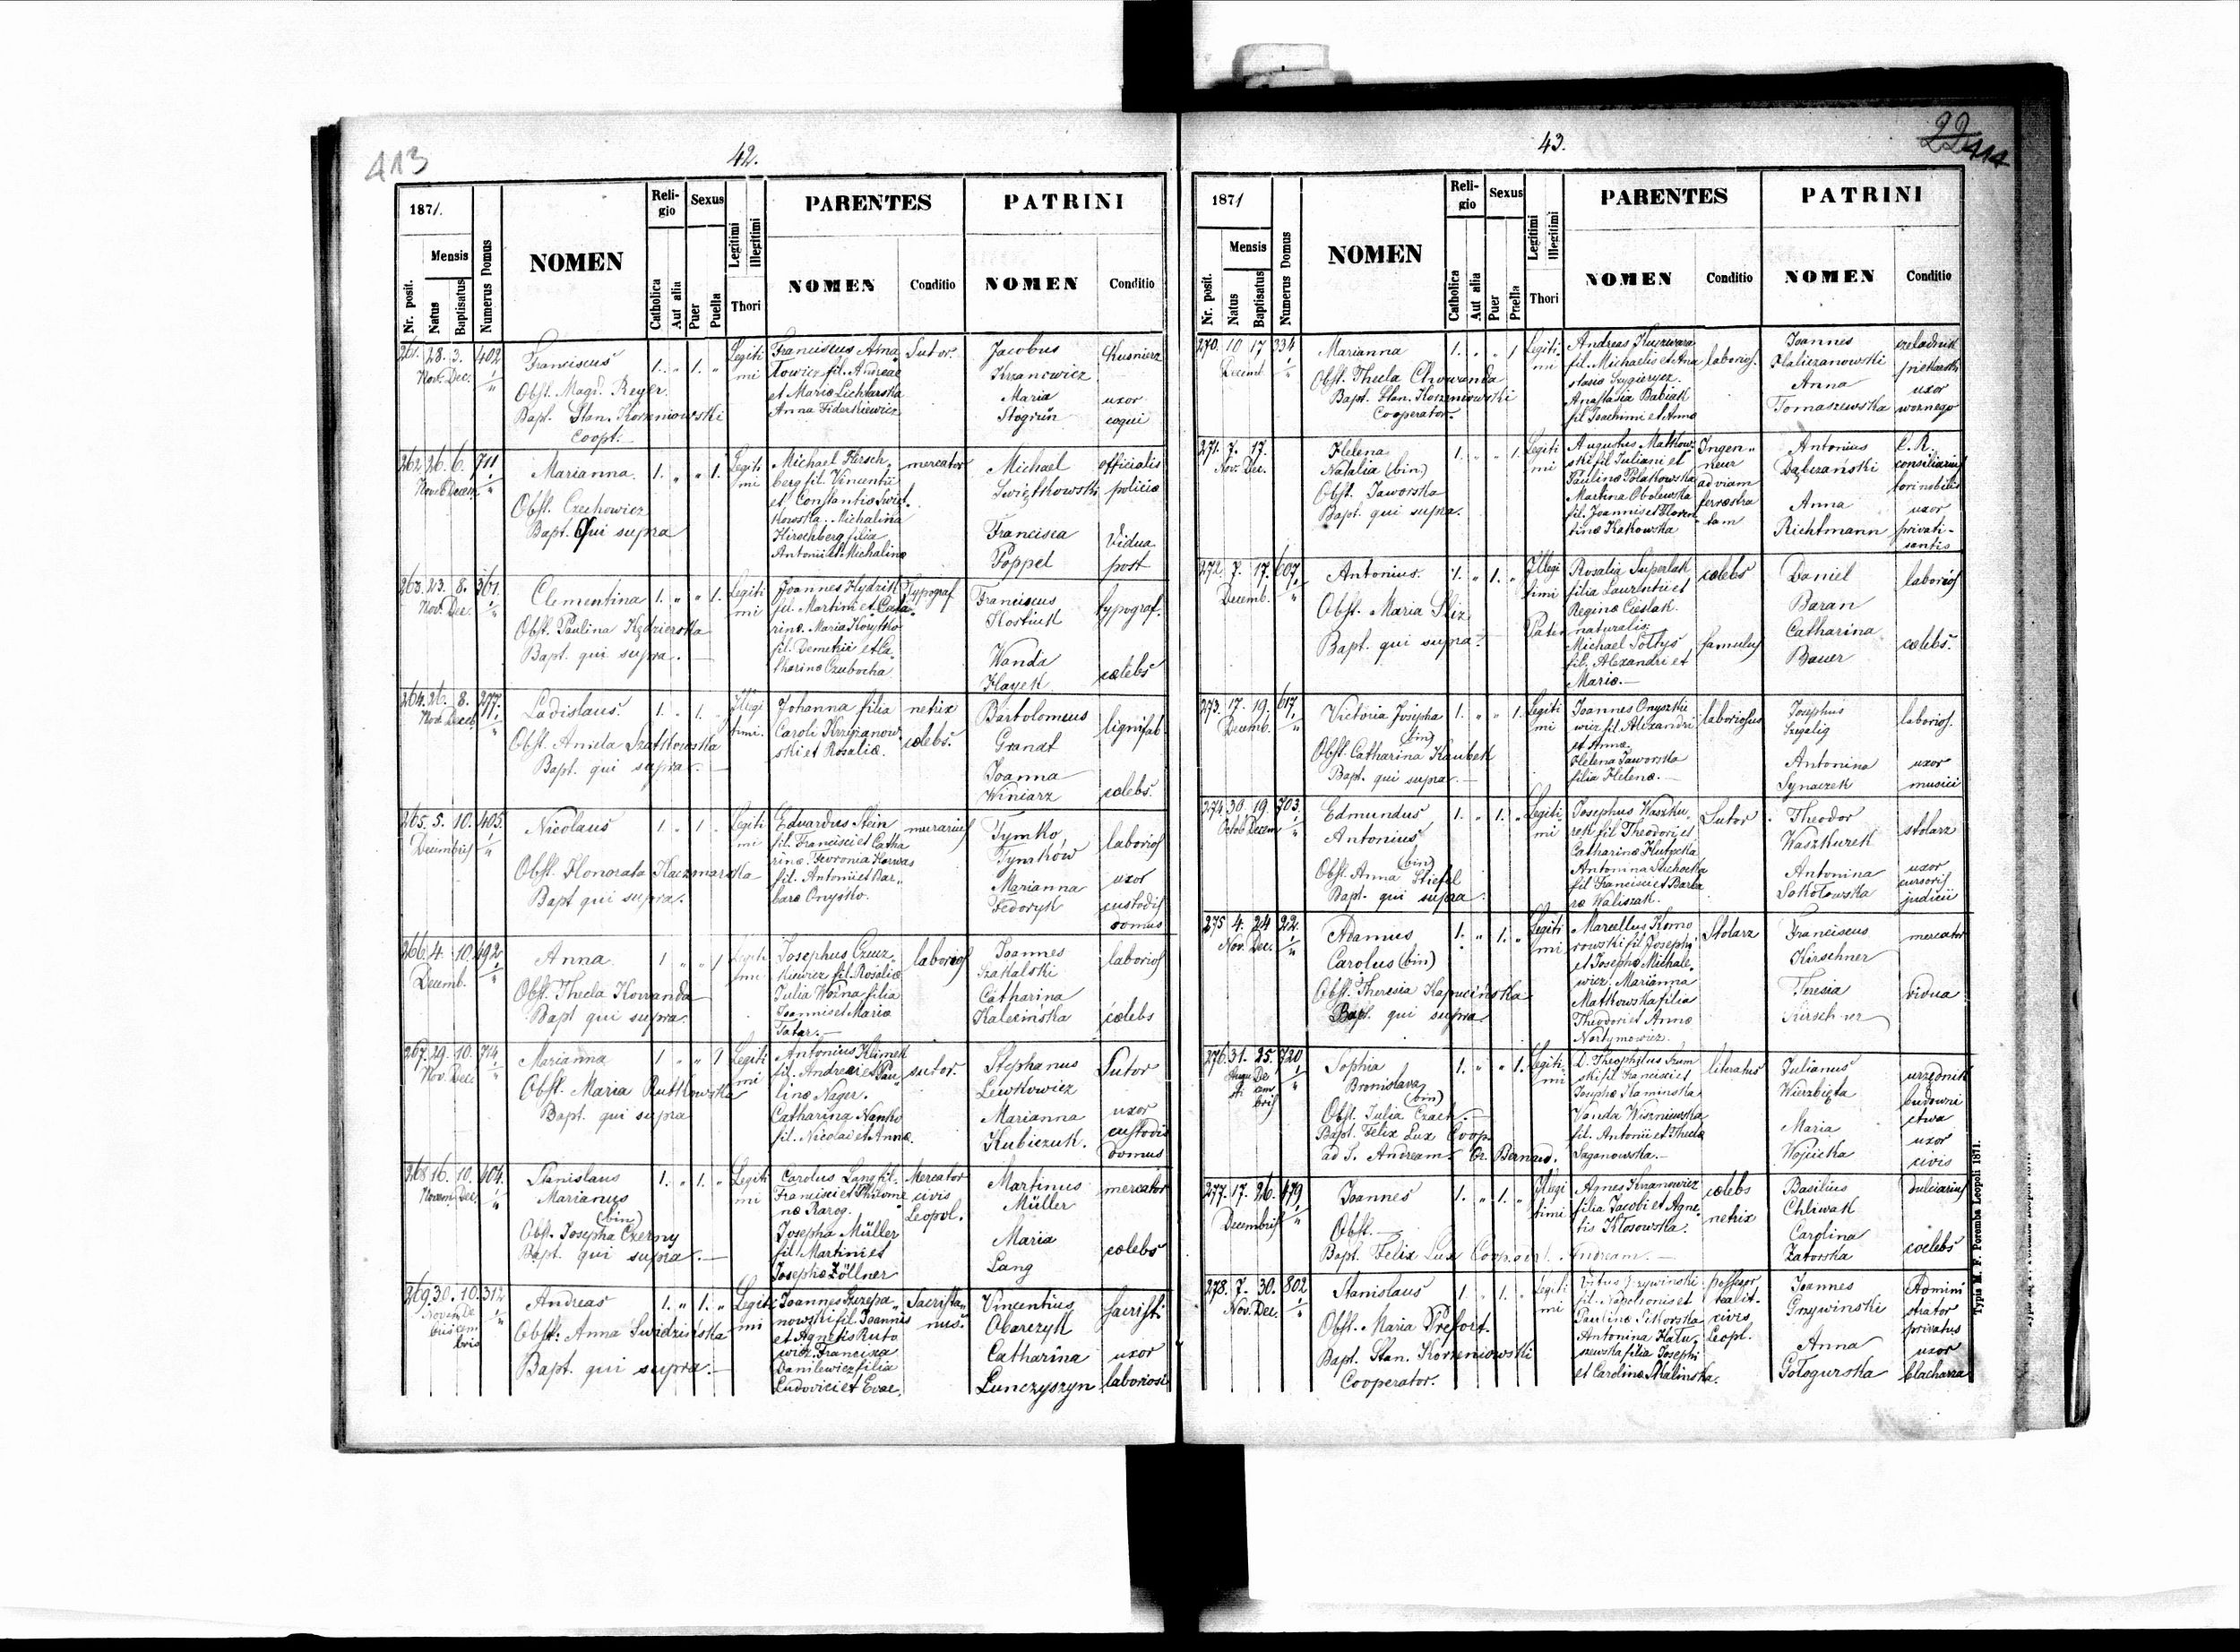 413
42.
1871.
Mensis
Nr. posit.
Natus
Baptisatus
Numerus Domus
NOMEN
Religio
Catholica
Aut alia
Sexus
Puer
Puella
Legitimi
Illegitimi
Thori
PARENTES
NOMEN
Conditio
PATRINI
NOMEN
Conditio
261. 28. 3. 402
Nov. Dec.
Franciscus
Obst. Magd. Reyer
Bapt. Stan. Korzeniowski
Coopt.
1. „ 1. „
Legiti
mi
Franciscus
fil. Andreae
et Mariæ Lichtarska
Anna Fiderkiewicz
Sutor.
Jacobus
Krzanowicz
Maria
Stogrün
Kusnierz
uxor
coqui
262. 26. 6. 711
Novb Decem.
Marianna
Obst. Czechowicz
Bapt. Qui supra
1. „ „ 1.
Legiti
mi
Michael Hirsch
berg fil. Vincentii
et Constantiæ Swięt
kowska. Michalina
Hirschberg filia
Antonii et Michalinæ
mercator
Michael
Swiętkowski
Francisca
Poppel
officialis
policiæ
Vidua
post
263. 23. 8. 361.
Nov. Dec.
Clementina
Obst. Paulina Kędzierska
Bapt. qui supra.
1. „ „ 1.
Legiti
mi
Joannes Hydzik
fil. Martini et Cata
rinæ. Maria Korytko
fil. Demetrii et Ca
tharinæ Czubocha
Typograf.
Franciscus
Kostiuk
Wanda
Hayek
typograf.
cælebs
264. 26. 8. 297.
Nov. Deceb
Ladislaus.
Obst. Aniela Szatkowska
Bapt. qui supra.
1. „ 1. „
Illegi
timi.
Johanna filia
Caroli Krzyżanow
ski et Rosaliæ.
netrix
cælebs.
Bartolomeus
Grandt
Joanna
Winiarz
lignifab.
cælebs
265. 5. 10. 405.
Decembris
Nicolaus
Obst. Honorata Kaczmarska
Bapt qui supra.
1. „ 1. „
Legiti
mi
Eduardus Stein
fil. Francisci et Catha
rinæ. Fevronia Horwas
fil. Antonii et Bar„
baræ Onyśko.
murarius
Tymko
Tymków
Marianna
Fedoryk
laborios
uxor
custodis
domus
266. 4. 10. 492
Decemb.
Anna
Obst. Thecla Kowanda
Bapt qui supra.
1 „ „ 1
Legiti
mi
Josephus Czucz
kiewicz fil. Rosaliæ
Julia Woźna filia
Joannis et Mariæ
Tatar.
laborios
Joannes
Szakalski
Catharina
Kalecińska
laborios
cælebs
267. 29. 10. 714.
Nov. Dec.
Marianna
Obst. Maria Rutkowska
Bapt. qui supra
1 „ „ 1
Legiti
mi
Antonius Klimek
fil. Andreæ et Pau
linæ Nager.
Catharina Nanko
fil. Nicolai et Annæ.
sutor.
Stephanus
Lewkowicz
Marianna
Kubiczuk.
Sutor
uxor
custodis
domus
268 16. 10. 404.
Novem Dec
Stanislaus
Marianus
(bin)
Obst. Josepha Czerny
Bapt. qui supra.
1. „ 1. „
Legiti
mi
Carolus Lang fil.
Francisci et Philome
næ Rarog.
Josepha Müller
fil. Martini et
Josephæ Zöllner
Mercator
civis
Leopol.
Martinus
Müller
Maria
Lang
mercator
cælebs
269. 30. 10. 312
Novem De
bris cem
bris
Andreas
Obst: Anna Swidzińska
Bapt. qui supra.
1. „ 1. „
Legiti
mi
Joannes Szczepa
nowski fil. Joannis
et Agnetis Ruto
wicz. Francisca
Danilewicz filia
Ludovici et Evæ.
Sacrista
nus.
Vincentius
Obarczyk
Catharina
Lunczyszyn
sacrist.
uxor
laboriosi
43.
22 414
1871
Mensis
Nr. posit.
Natus
Baptisatus
Numerus Domus
NOMEN
Religio
Catholica
Aut alia
Sexus
Puer
Puella
Legitimi
Illegitimi
Thori
PARENTES
NOMEN
Conditio
PATRINI
NOMEN
Conditio
270. 10 17 334
Decemb
Marianna
Obst. Thecla Chowanda
Bapt. Stan. Korzeniowski
Cooperator.
1. „ „ 1
Legiti
mi
Andreas Kuszwara
fil. Michaelis et Ana
stasiæ
Anastasia Babiak
fil. Joachimi et Annæ
laborios.
Joannes
Haliczanowski
Anna
Tomaszewska
czeladnik
piekarski
uxor
woznego
271. 7. 17.
Nov. Dec.
Helena
Natalia (bin)
Obst. Jaworska
Bapt. qui supra.
1. „ „ 1.
Legiti
mi
Augustus Matkow
ski fil Juliani et
Paulinæ Polakowska
Martina Obolewska
fil. Joannis et Floren
tinæ Katkowska
Ingen„
neur
ad viam
ferroestra
tam
Antonius
Dąbczański
Anna
Richtmann
C. R.
consiliarius
fori nobilis
uxor
privati-
santis
272. 7. 17. 607
Decemb.
Antonius.
Obst. Maria Sliz
Bapt. qui supra.
1. „ 1. „
Illegi
timi
Pater
Rosalia Superlak
filia Laurentii et
Reginæ Cieslak.
naturalis:
Michael Sołtys
fil. Alexandri et
Mariæ.
cælebs
famulus
Daniel
Baran
Catharina
Bauer
laborios
cælebs.
273. 17. 19. 617.
Decemb.
Victoria Josepha
(bin)
Obst. Catharina Kaubek
Bapt. qui supra.
1. „ „ 1.
Legiti
mi
Joannes Onyszkie
wicz fil. Alexandri
et Annæ.
Helena Jaworska
filia Helenæ.
laboriosus
Josephus
Szegalig
Antonina
Synaczek
laborios.
uxor
musici
274. 30. 19. 703.
Octob Decem
Edmundus
Antonius
(bin)
Obst. Anna Stiefel
Bapt. qui supra
1. „ 1. „
Legiti
mi
Josephus Waszku
rek fil Theodori et
Catharinæ
Antonina Suchecka
fil Francisci et Barba
ræ Waliszak.
Sutor
Theodor
Waszkurek
Antonina
Sokołowska
stolarz
uxor
cursoris
judicii
275 4. 24 22.
Nov. Dec.
Adamus
Carolus (bin)
Obst. Theresia Kapucińska
Bapt. qui supra
1. „ 1. „
Legiti
mi
Marcellus Komo
rowski fil Josephi
et Josephæ Michale
wicz. Marianna
Matkowska filia
Theodori et Annæ
Nartymowicz.
Stolarz
Franciscus
Kirschner
Teresia
Kirschner
mercator
vidua
276. 31. 25. 720
Augu De
sti cem
bris
Sophia
Bronislava
(bin)
Obst. Julia Czach.
Bapt. Felix Lux Coop.
ad S. Andream. Or. Bernard.
1. „ „ 1.
Legiti
mi
D. Theophilus Szum
ski fil Francisci et
Josephæ Kaminska
Vanda Wiszniewska
fil. Antonii et Theclæ
Saganowska.
literatus
Julianus
Wierzbięta
Maria
Wojcicka
urzędnik
budowni
ctwa
uxor
civis
277. 17. 26. 479
Decembris
Joannes
Obst.
Bapt. Felix Lux Coop. ad S. Andream.
1. „ 1. „
Illegi
timi
Agnes Krzanowicz
filia Jacobi et Agne
tis Kłosowska.
cælebs
netrix
Basilius
Chliwak
Carolina
Zatorska
dulciarius
cœlebs
278. 7. 30. 802
Nov. Dec.
Stanislaus
Obst. Maria Prefort.
Bapt. Stan. Korzeniowski
Cooperator.
1. „ 1. „
Legiti
mi
Vitus Grzywinski
fil. Napoleonis et
Paulinæ Sikorska
Antonina Katu
szewska filia Josephi
et Carolinæ Malinska.
possesor
realit.
civis
Leopl.
Joannes
Grzywinski
Anna
Gołogurska
Admini
strator
privatus
uxor
blacharza
Typis M. F. Poremba Leopoli 1871.